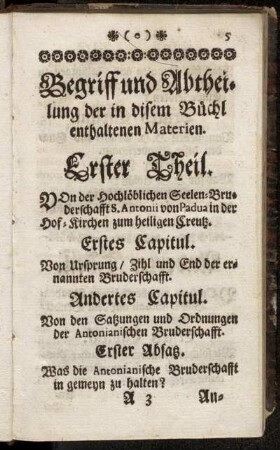 (o) 5
Begriff und Abthei-
lung der in disem Büchl
enthaltenen Materien.
Erster Theil.
VOn der Hochlöblichen Seelen-Bru-
derschafft S. Antonii von Padua in der
Hof-Kirchen zum heiligen Creutz.
Erstes Capitul.
Von Ursprung / Zihl und End der er-
nannten Bruderschafft.
Andertes Capitul.
Von den Satzungen und Ordnungen
der Antonianischen Bruderschafft.
Erster Absatz.
Was die Antonianische Bruderschafft
in gemeyn zu halten?
A 3 An-